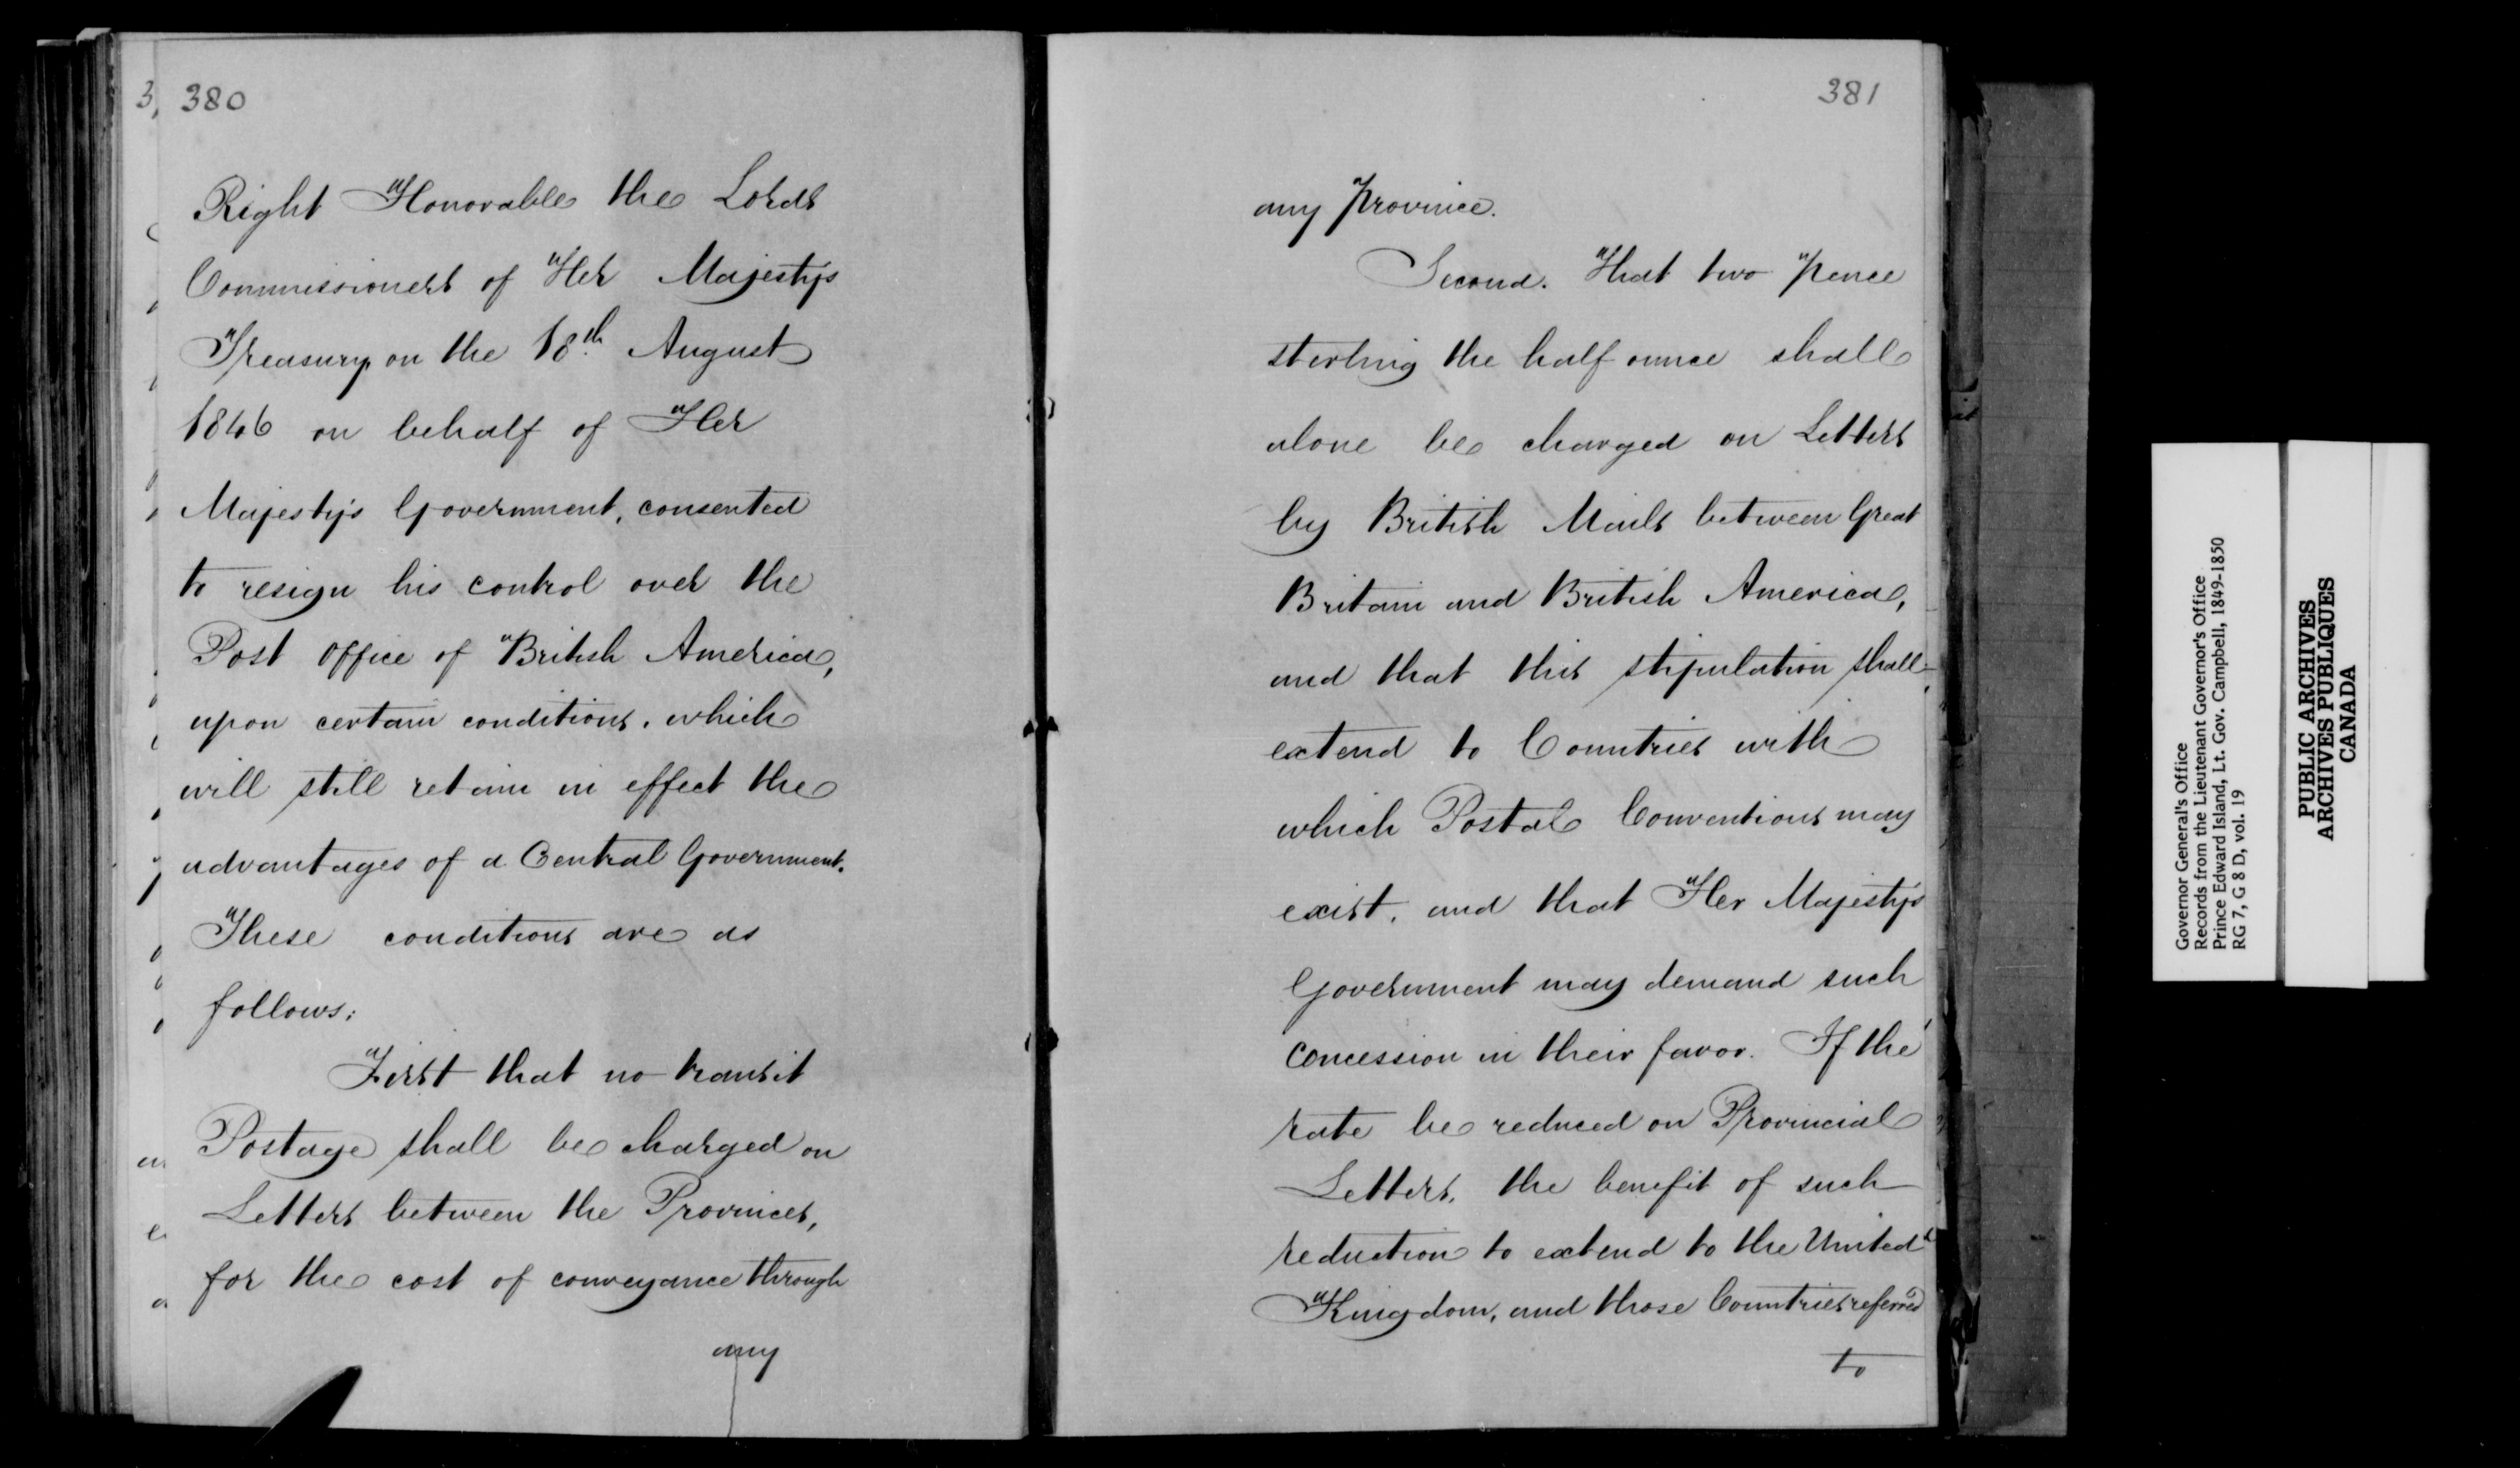 380
Right Honorable the Lords
Commissioners of Her Majesty's
Treasury on the 18th August
1846 on behalf of Her
Majesty's Government, consented
to resign his control over the
Post Office of British America,
upon certain conditions, which
will still retain in effect the
advantages of a Central Government.
These conditions are as
follows:
First that no transit
Postage shall be charged on
Letters between the Provinces,
for the cost of conveyance through
any
381
any Province.
Second. That two pence
sterling the half ounce shall
alone be charged on Letters
by British Mails between Great
Britain and British America,
and that this stipulation shall
extend to Countries with
which Postal Conventions may
exist, and that Her Majesty's
Government may demand such
concession in their favor. If the
rate be reduced on Provincial
Letters, the benefit of such
reduction to extend to the United
Kingdom, and those Countries referred
to
Governor General's Office
Records from the Lieutenant Governor's Office
Prince Edward Island, Lt. Gov. Campbell, 1849-1850
RG 7, G 8 D, vol. 19
PUBLIC ARCHIVES
ARCHIVES PUBLIQUES
CANADA